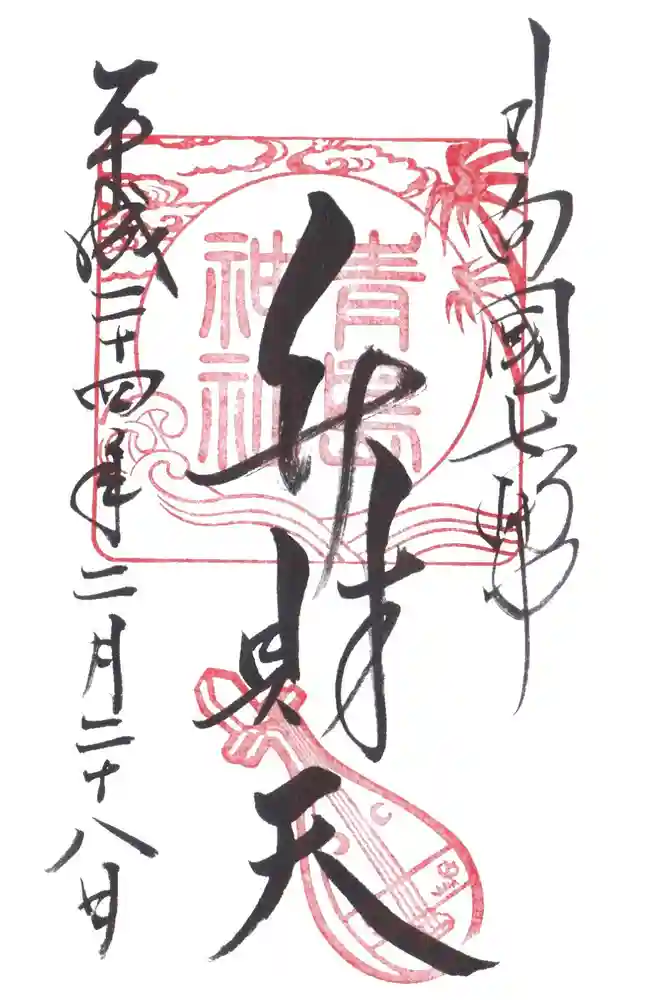 日向國七福神
弁財天
青島
神社
平成二十四年二月二十八日